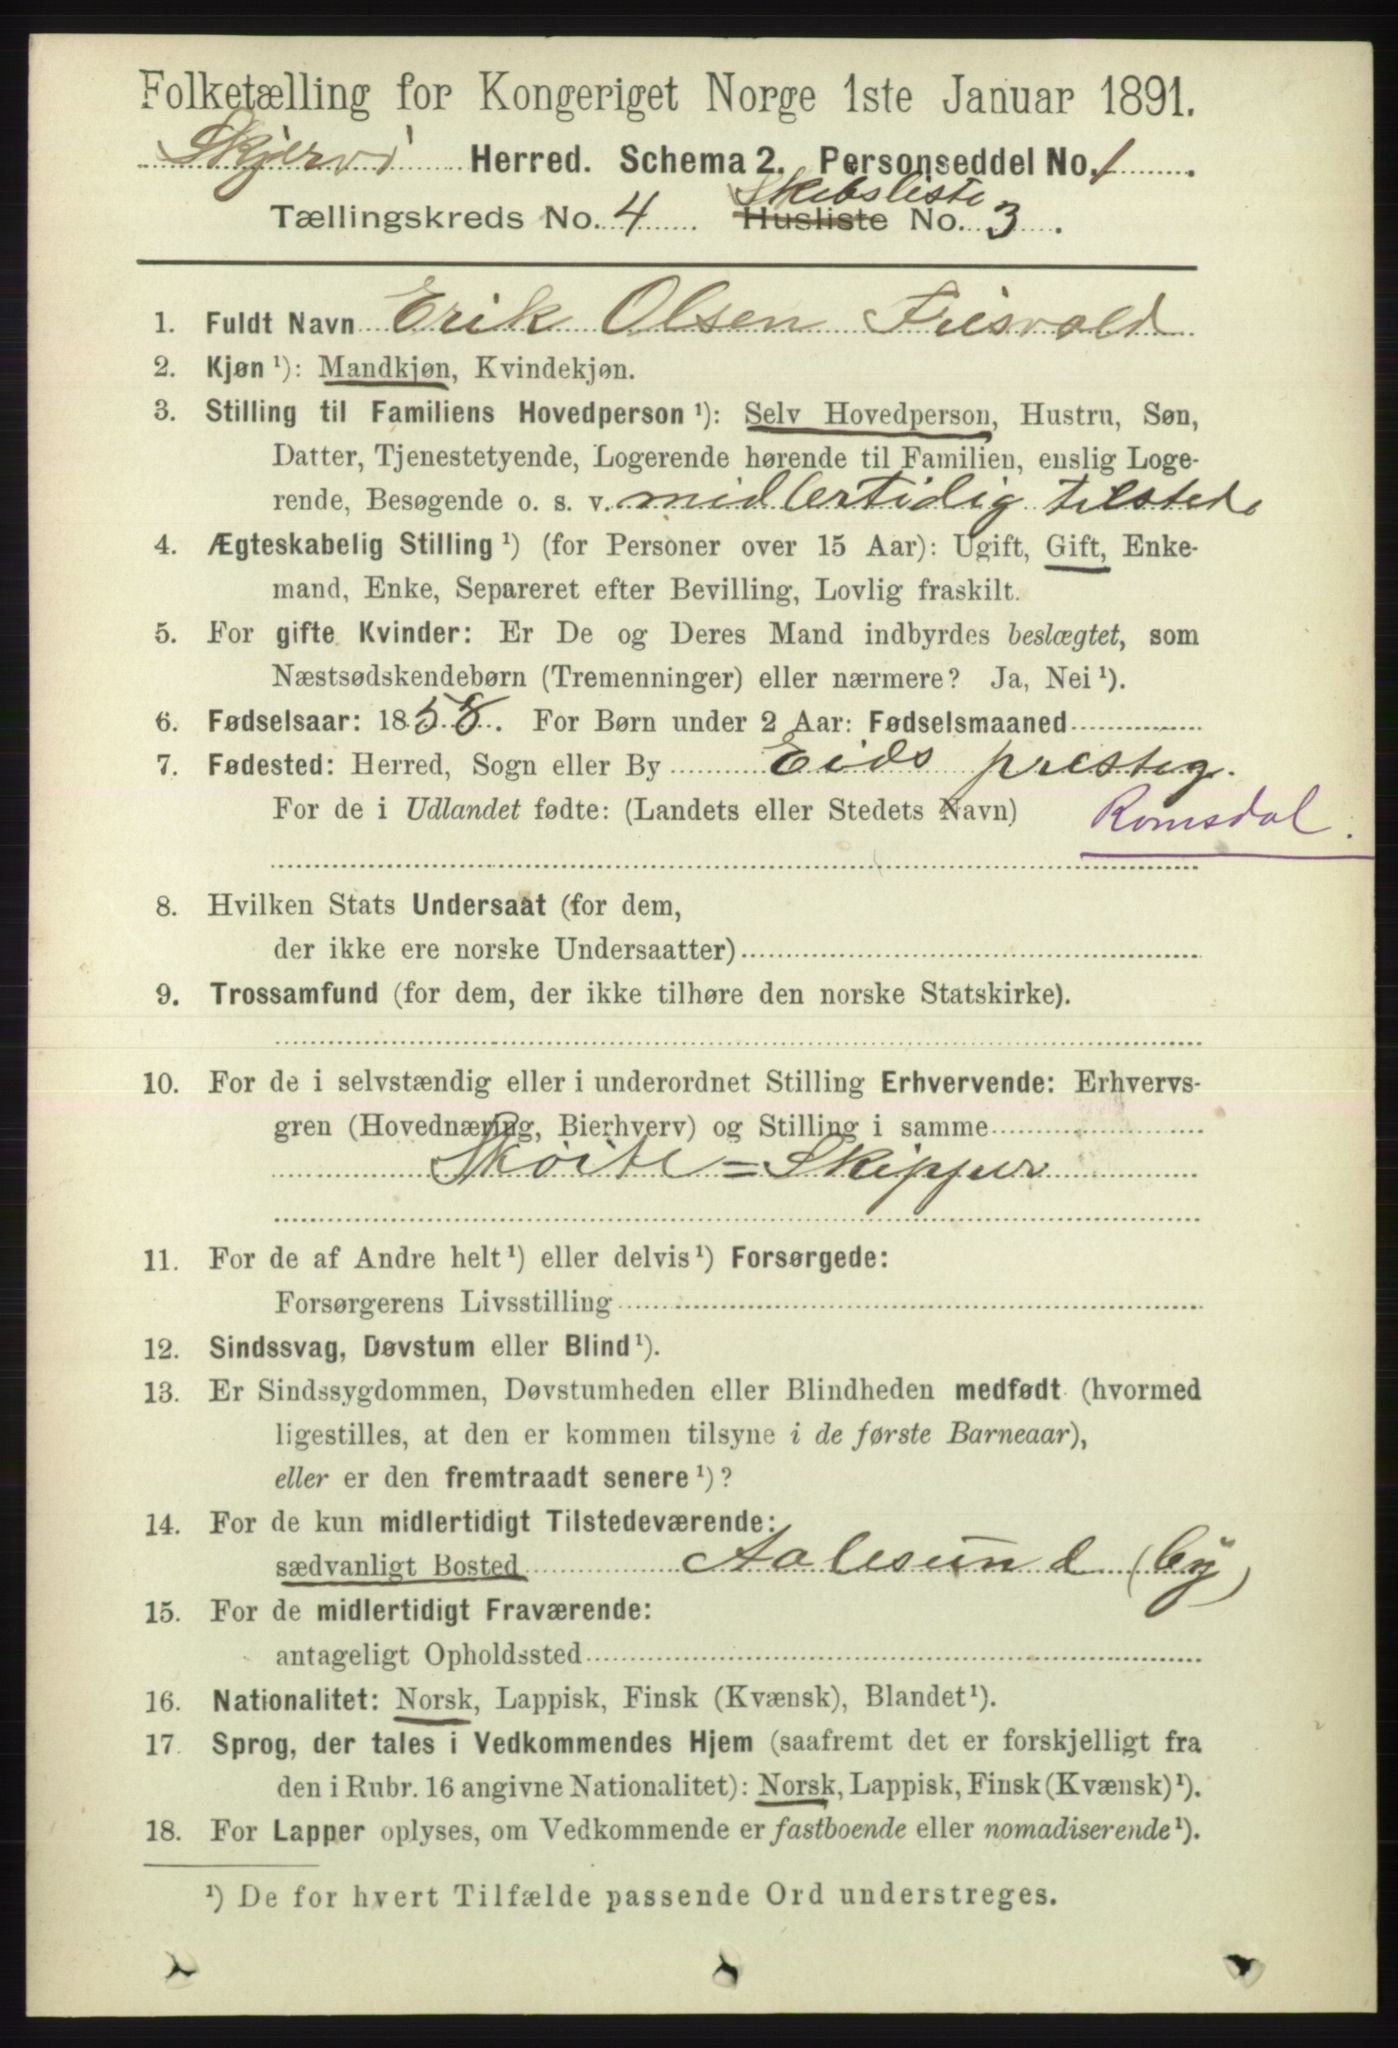 Folketælling for Kongeriget Norge 1ste Januar 1891.
Skjervö Herred. Schema 2. Personseddel No. 1
Skibsliste
Tællingskreds No. 4 Husliste No. 3.
1. Fuldt Navn Erik Olsen Frisvold
2. Kjøn ¹): Mandkjøn, Kvindekjøn.
3. Stilling til Familiens Hovedperson ¹): Selv Hovedperson, Hustru, Søn,
Datter, Tjenestetyende, Logerende hørende til Familien, enslig Loge-
rende, Besøgende o. s. v. midlertidig tilstede
4. Ægteskabelig Stilling ¹) (for Personer over 15 Aar): Ugift, Gift, Enke-
mand, Enke, Separeret efter Bevilling, Lovlig fraskilt.
5. For gifte Kvinder: Er De og Deres Mand indbyrdes beslægtet, som
Næstsødskendebørn (Tremenninger) eller nærmere? Ja, Nei ¹).
6. Fødselsaar: 1858. For Børn under 2 Aar: Fødselsmaaned
7. Fødested: Herred, Sogn eller By Eids presteg.
For de i Udlandet fødte: (Landets eller Stedets Navn) Romsdal.
8. Hvilken Stats Undersaat (for dem,
der ikke ere norske Undersaatter)
9. Trossamfund (for dem, der ikke tilhøre den norske Statskirke).
10. For de i selvstændig eller i underordnet Stilling Erhvervende: Erhvervs-
gren (Hovednæring, Bierhverv) og Stilling i samme
Skøite=Skipper
11. For de af Andre helt ¹) eller delvis ¹) Forsørgede:
Forsørgerens Livsstilling
12. Sindssvag, Døvstum eller Blind ¹).
13. Er Sindssygdommen, Døvstumheden eller Blindheden medfødt (hvormed
ligestilles, at den er kommen tilsyne i de første Barneaar),
eller er den fremtraadt senere ¹)?
14. For de kun midlertidigt Tilstedeværende:
sædvanligt Bosted Aalesund (by)
15. For de midlertidigt Fraværende:
antageligt Opholdssted
16. Nationalitet: Norsk, Lappisk, Finsk (Kvænsk), Blandet ¹).
17. Sprog, der tales i Vedkommendes Hjem (saafremt det er forskjelligt fra
den i Rubr. 16 angivne Nationalitet): Norsk, Lappisk, Finsk (Kvænsk) ¹).
18. For Lapper oplyses, om Vedkommende er fastboende eller nomadiserende ¹).
¹) De for hvert Tilfælde passende Ord understreges.